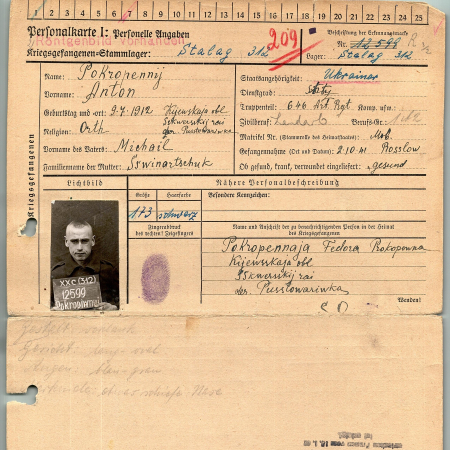 1 2 3 4 5 6 7 8 9 10 11 12 13 14 15 16 17 18 19 20 21 22 23 24 25
Personalkarte I: Personelle Angaben
Röntgenbild vorhanden
Kriegsgefangenen-Stammlager: Stalag 312
209
Beschriftung der Erkennungsmarke
Nr. 12599
Lager: Stalag 312
Name: Pokropennij
Vorname: Anton
Geburtstag und -ort: 9.7.1912 Kijewskaja obl
Skwerskij rai
dor. Pustowariwka
Religion: Orth
Vorname des Vaters: Michail
Familienname der Mutter: Sswinartschuk
Staatsangehörigkeit: Ukrainer
Dienstgrad:
Truppenteil: 646 Art. Rgt. Komp. usw.:
Zivilberuf: Berufs-Gr.:
Matrikel Nr. (Stammrolle des Heimatstaates): Mob.
Gefangennahme (Ort und Datum): 2.10.41 Rosslow
Ob gesund, krank, verwundet eingeliefert: gesund
Kriegsgefangenen
Lichtbild
Nähere Personalbeschreibung
Größe
Haarfarbe
Besondere Kennzeichen:
173
schwarz
Fingerabdruck
des rechten! Zeigefingers
Name und Anschrift der zu benachrichtigenden Person in der Heimat
des Kriegsgefangenen
Pokropennaja Fedora Prokopowna
Kijewskaja obl
Sskwerskij rai
dor. Pusstowariwka
Wenden!
XXC (312)
12599
Pokropennij
Gesicht: lang-oval
Augen: blau-grau